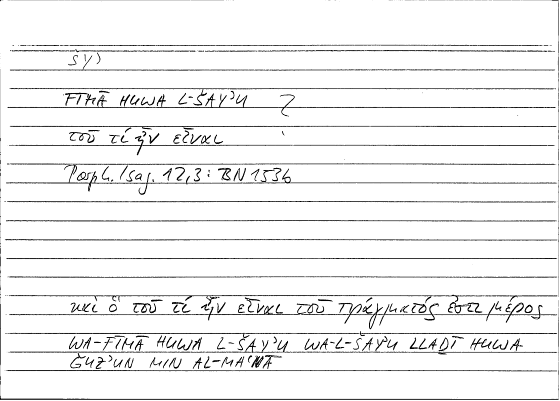 šyʾ
FĪMĀ HUWA L-ŠAYʾU ?
τοῦ τί ἦν εἶναι
Porph. Isag. 12,3 : BN 153b
καὶ ὃ τοῦ τί ἦν εἶναι τοῦ πράγματός ἐστι μέρος
WA-FĪMĀ HUWA L-ŠAYʾU WA-L-ŠAYʾU LLAḎĪ HUWA
ǦUZʾUN MIN AL-MAʿNĀ